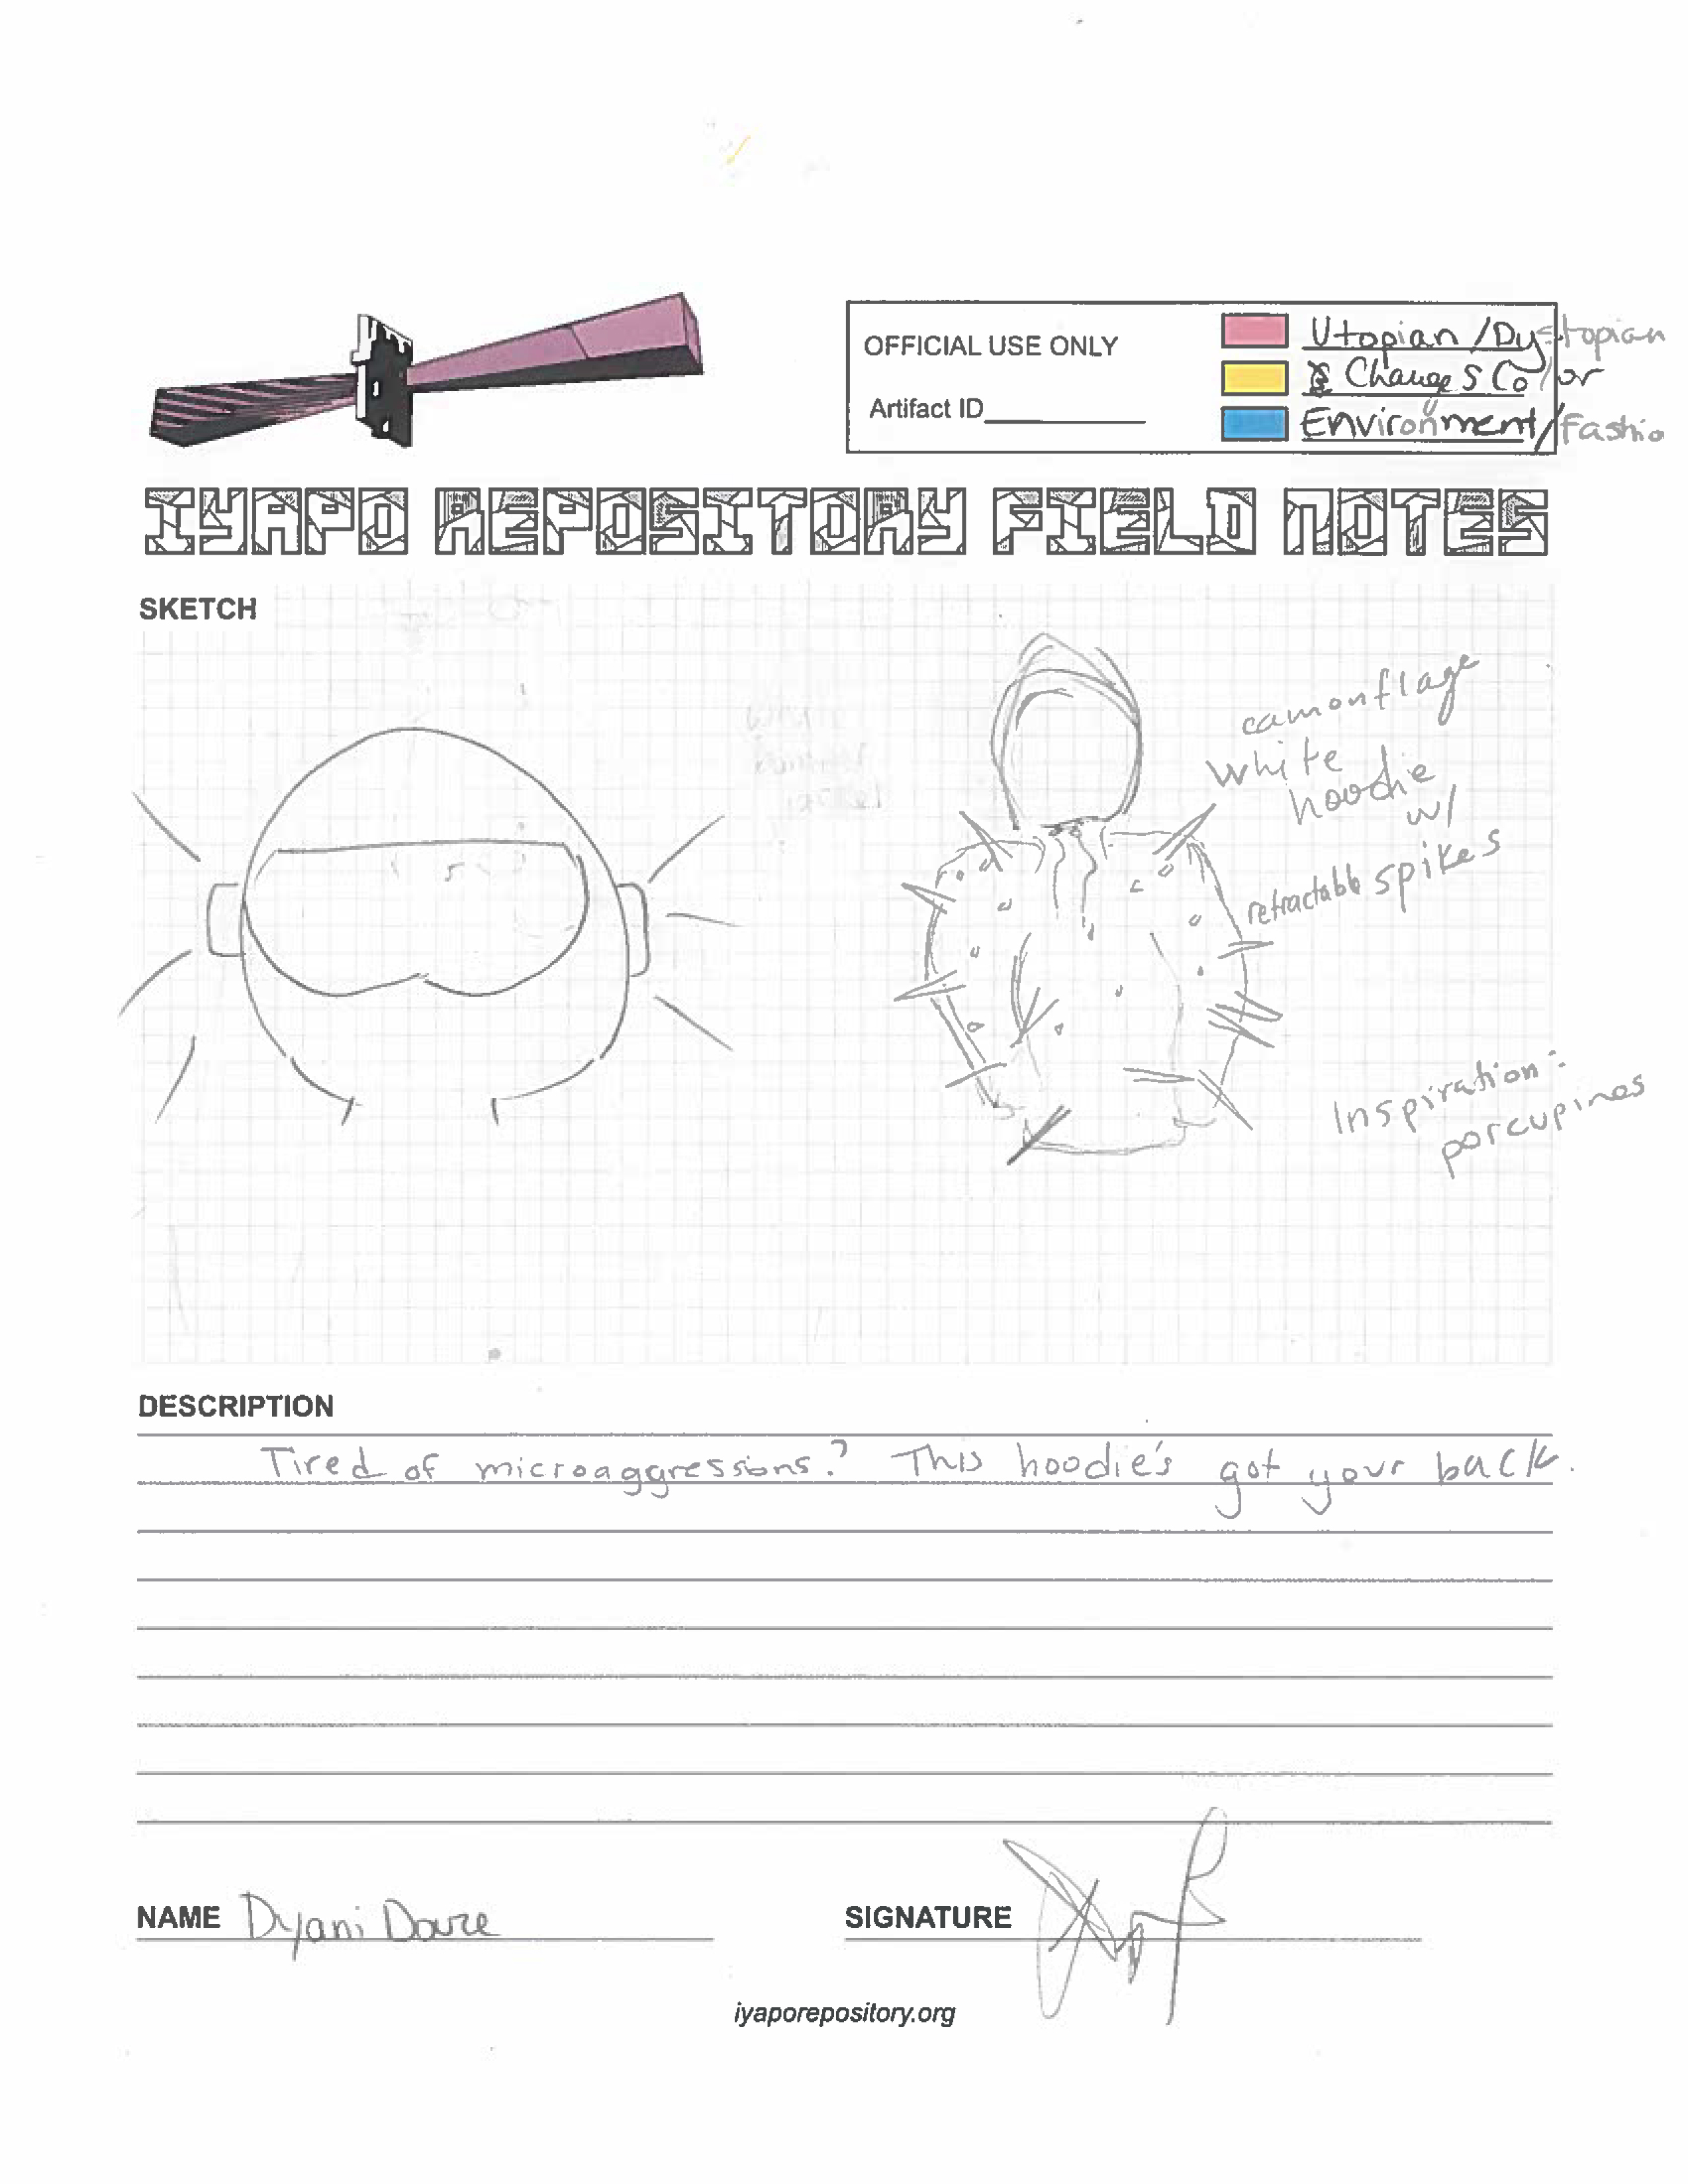 OFFICIAL USE ONLY
Artifact ID
Utopian / Dystopian
Changes Color
Environment / Fashio
IYAPO REPOSITORY FIELD NOTES
SKETCH
camonflage
white
hoodie
w/
retractable spikes
Inspiration:
porcupines
DESCRIPTION
Tired of microaggressions? This hoodie's got your back.
NAME Dyani Douze
SIGNATURE
iyaporepository.org